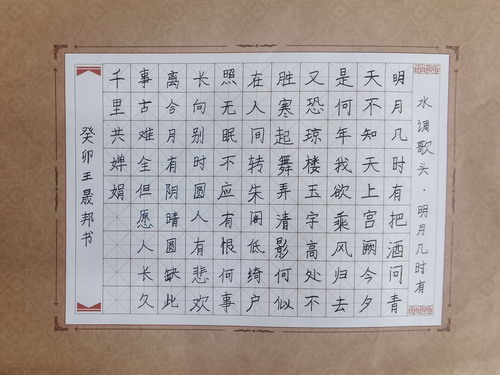 水调歌头·明月几时有
明月几时有把酒问青
天不知天上宫阙今夕
是何年我欲乘风归去
又恐琼楼玉宇高处不
胜寒起舞弄清影何似
在人间转朱阁低绮户
照无眠不应有恨何事
长向别时圆人有悲欢
离合月有阴晴圆缺此
事古难全但愿人长久
千里共婵娟
癸卯王晟邦书